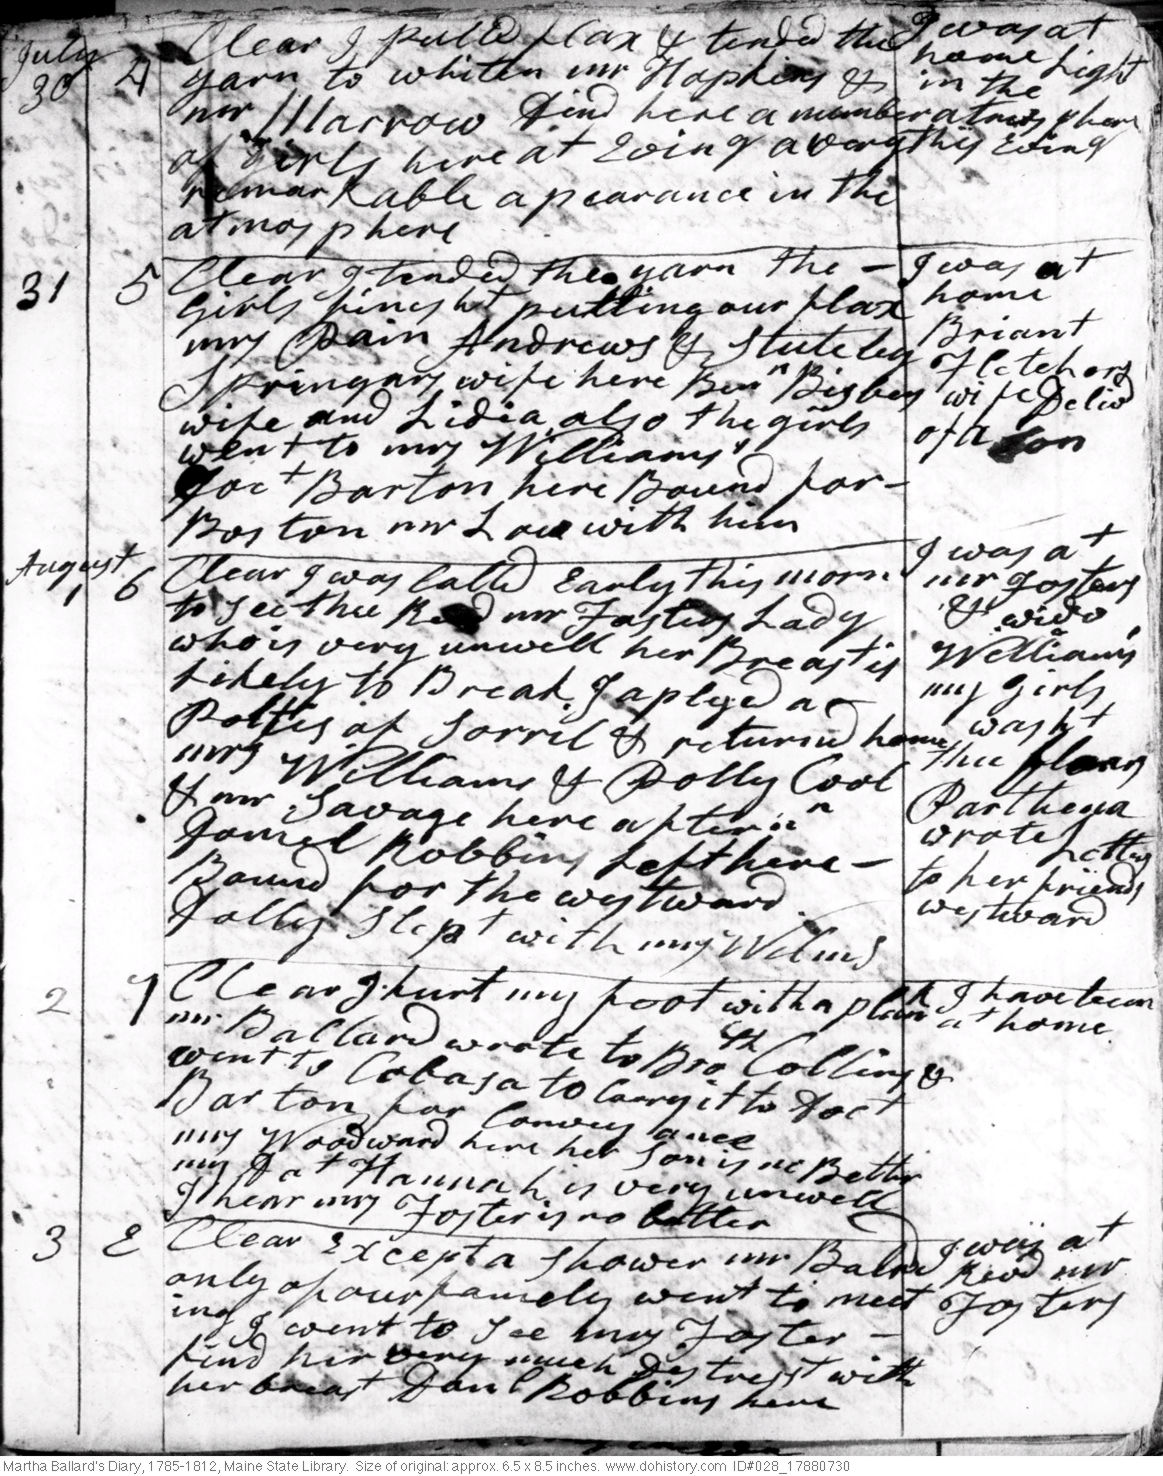 July
30 4 Clear I Pulld flax & tended the
yarn to whiten mr Hopkins &
mr Marrow dind here a number
of girls here at Eving a very
remarkable apearance in the
atmosphere
I was at
home Light
in the
atmosphere
this Evinge
31 5 Clear I tended the yarn the -
Girls finesht pulling our flax
mrs Pain Andrews & Stuteley
Springers wife here Benn Bisbeys
wife and Lidia also the girls
went to mrs Williams's
Doct Barton here Bound for -
Boston mr Low with him
I was at
home
Briant
Fletchers
wife Delivd
of a son
August
1 6 Clear I was Calld Early this morn
to See the Revd mr Fosters Lady
who is very unwell her Breast is
Likely to Break I aplyed a -
Poltis of Sorril & returnd home
mrs Williams & Dolly Cool
& mr Savage here aftern
Daniel Robbins Left here -
Bound for the westward
Dolly Slept with mrs Wilms
I was at
mr Fosters
& wido
Williams
my girls
washt
thee floors
Parthena
wrote
Letters
to her friends
westward
2 7 Clear I hurt my foot with a plank
mr Ballard wrote to Broth Collins &
went to Cobasa to Carry it to Doct
Barton for Conveyance
mrs Woodward here her Son is no Better
my Dat Hannah is very unwell
I hear mrs Foster is no better
I have been
at home
3 E Clear Except a Shower mr Balrd
only of our famely went to meet
ing I went to See mrs Foster -
find her very much Distresst with
her breast Danl Robbins here
I was at
Revd mr
Fosters
Martha Ballard's Diary, 1785-1812, Maine State Library. Size of original: approx. 6.5 x 8.5 inches. www.dohistory.com ID#028_17880730